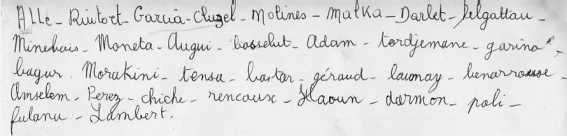 Alle - Rintort - Garcia - Cluzel - Molines - Malka - Darlet - Delgattau -
Minehais - Moneta - Augui - bosselut - Adam - tordjemane - garino -
bagur. Morakini - tensa - bastar - géraud - launay - benarrousse -
Amselem - Perez - chiche - rencoux - Haoun - darmon - poli -
fulanu - Lambert.